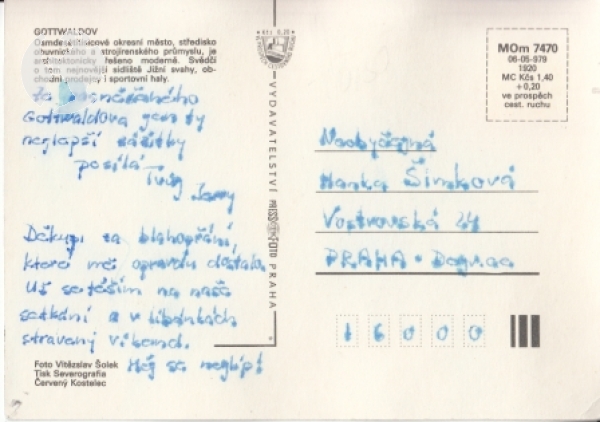 GOTTWALDOV
Osmdesátitisícové okresní město, středisko
obuvnického a strojírenského průmyslu, je
architektonicky řešeno moderně. Svědčí
o tom nejnovější sídliště Jižní svahy, ob-
chodní prodejny i sportovní haly.
Gottwaldova jen ty
nejlepší zážitky
posílá
Tvůj
Děkuji za blahopřání,
které mě opravdu
Už se těším na naše
setkání a v
strávený víkend.
Měj se nejlíp!
Foto Vítězslav Šolek
Tisk Severografia
Červený Kostelec
Kčs 0,20
VYDAVATELSTVÍ PRESSFOTO PRAHA
MOm 7470
06-05-979
1920
MC Kčs 1,40
+0,20
ve prospěch
cest. ruchu
Hanka Šimková
24
PRAHA
16000